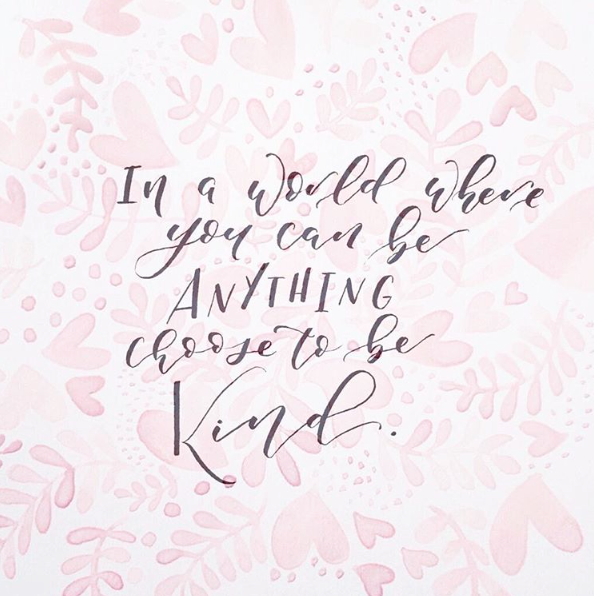 In a world where
you can be
ANYTHING
choose to be
Kind.